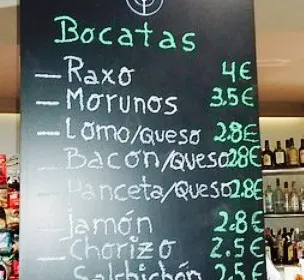 Bocatas
— Raxo 4€
— Morunos 3.5€
— Lomo/Queso 2.8€
— Bacon/Queso 2.8€
— Panceta/Queso 2.8€
— Jamón 2.8€
— Chorizo 2.5€
— Salchichón 2.5€